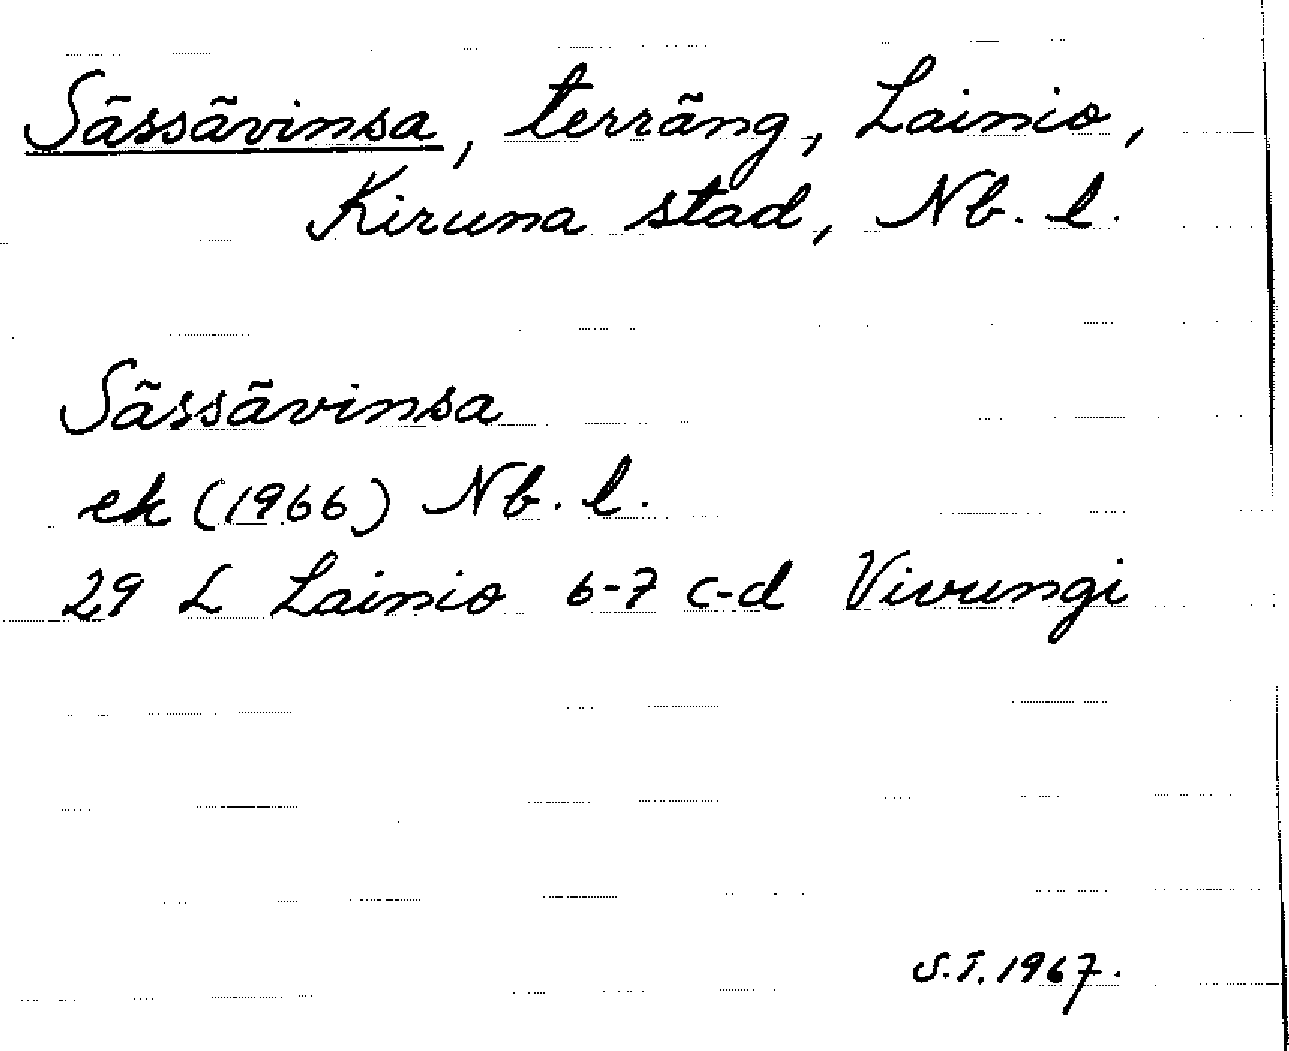 Sässävinsa, terräng, Lainio,
Kiruna stad, Nb. l.
Sässävinsa
ek (1966) Nb. l.
29 L Lainio 6-7 c-d Vivungi
S.T. 1967.